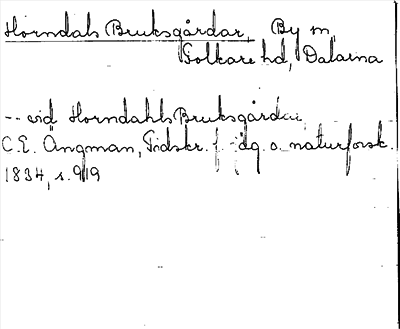 Horndals Bruksgårdar, By sn,
Folkare hd, Dalarna
-- vid Horndahls Bruksgårdar,
C. E. Ångman, Tidskr. f. jäg. o. naturforsk.
1834, s. 919